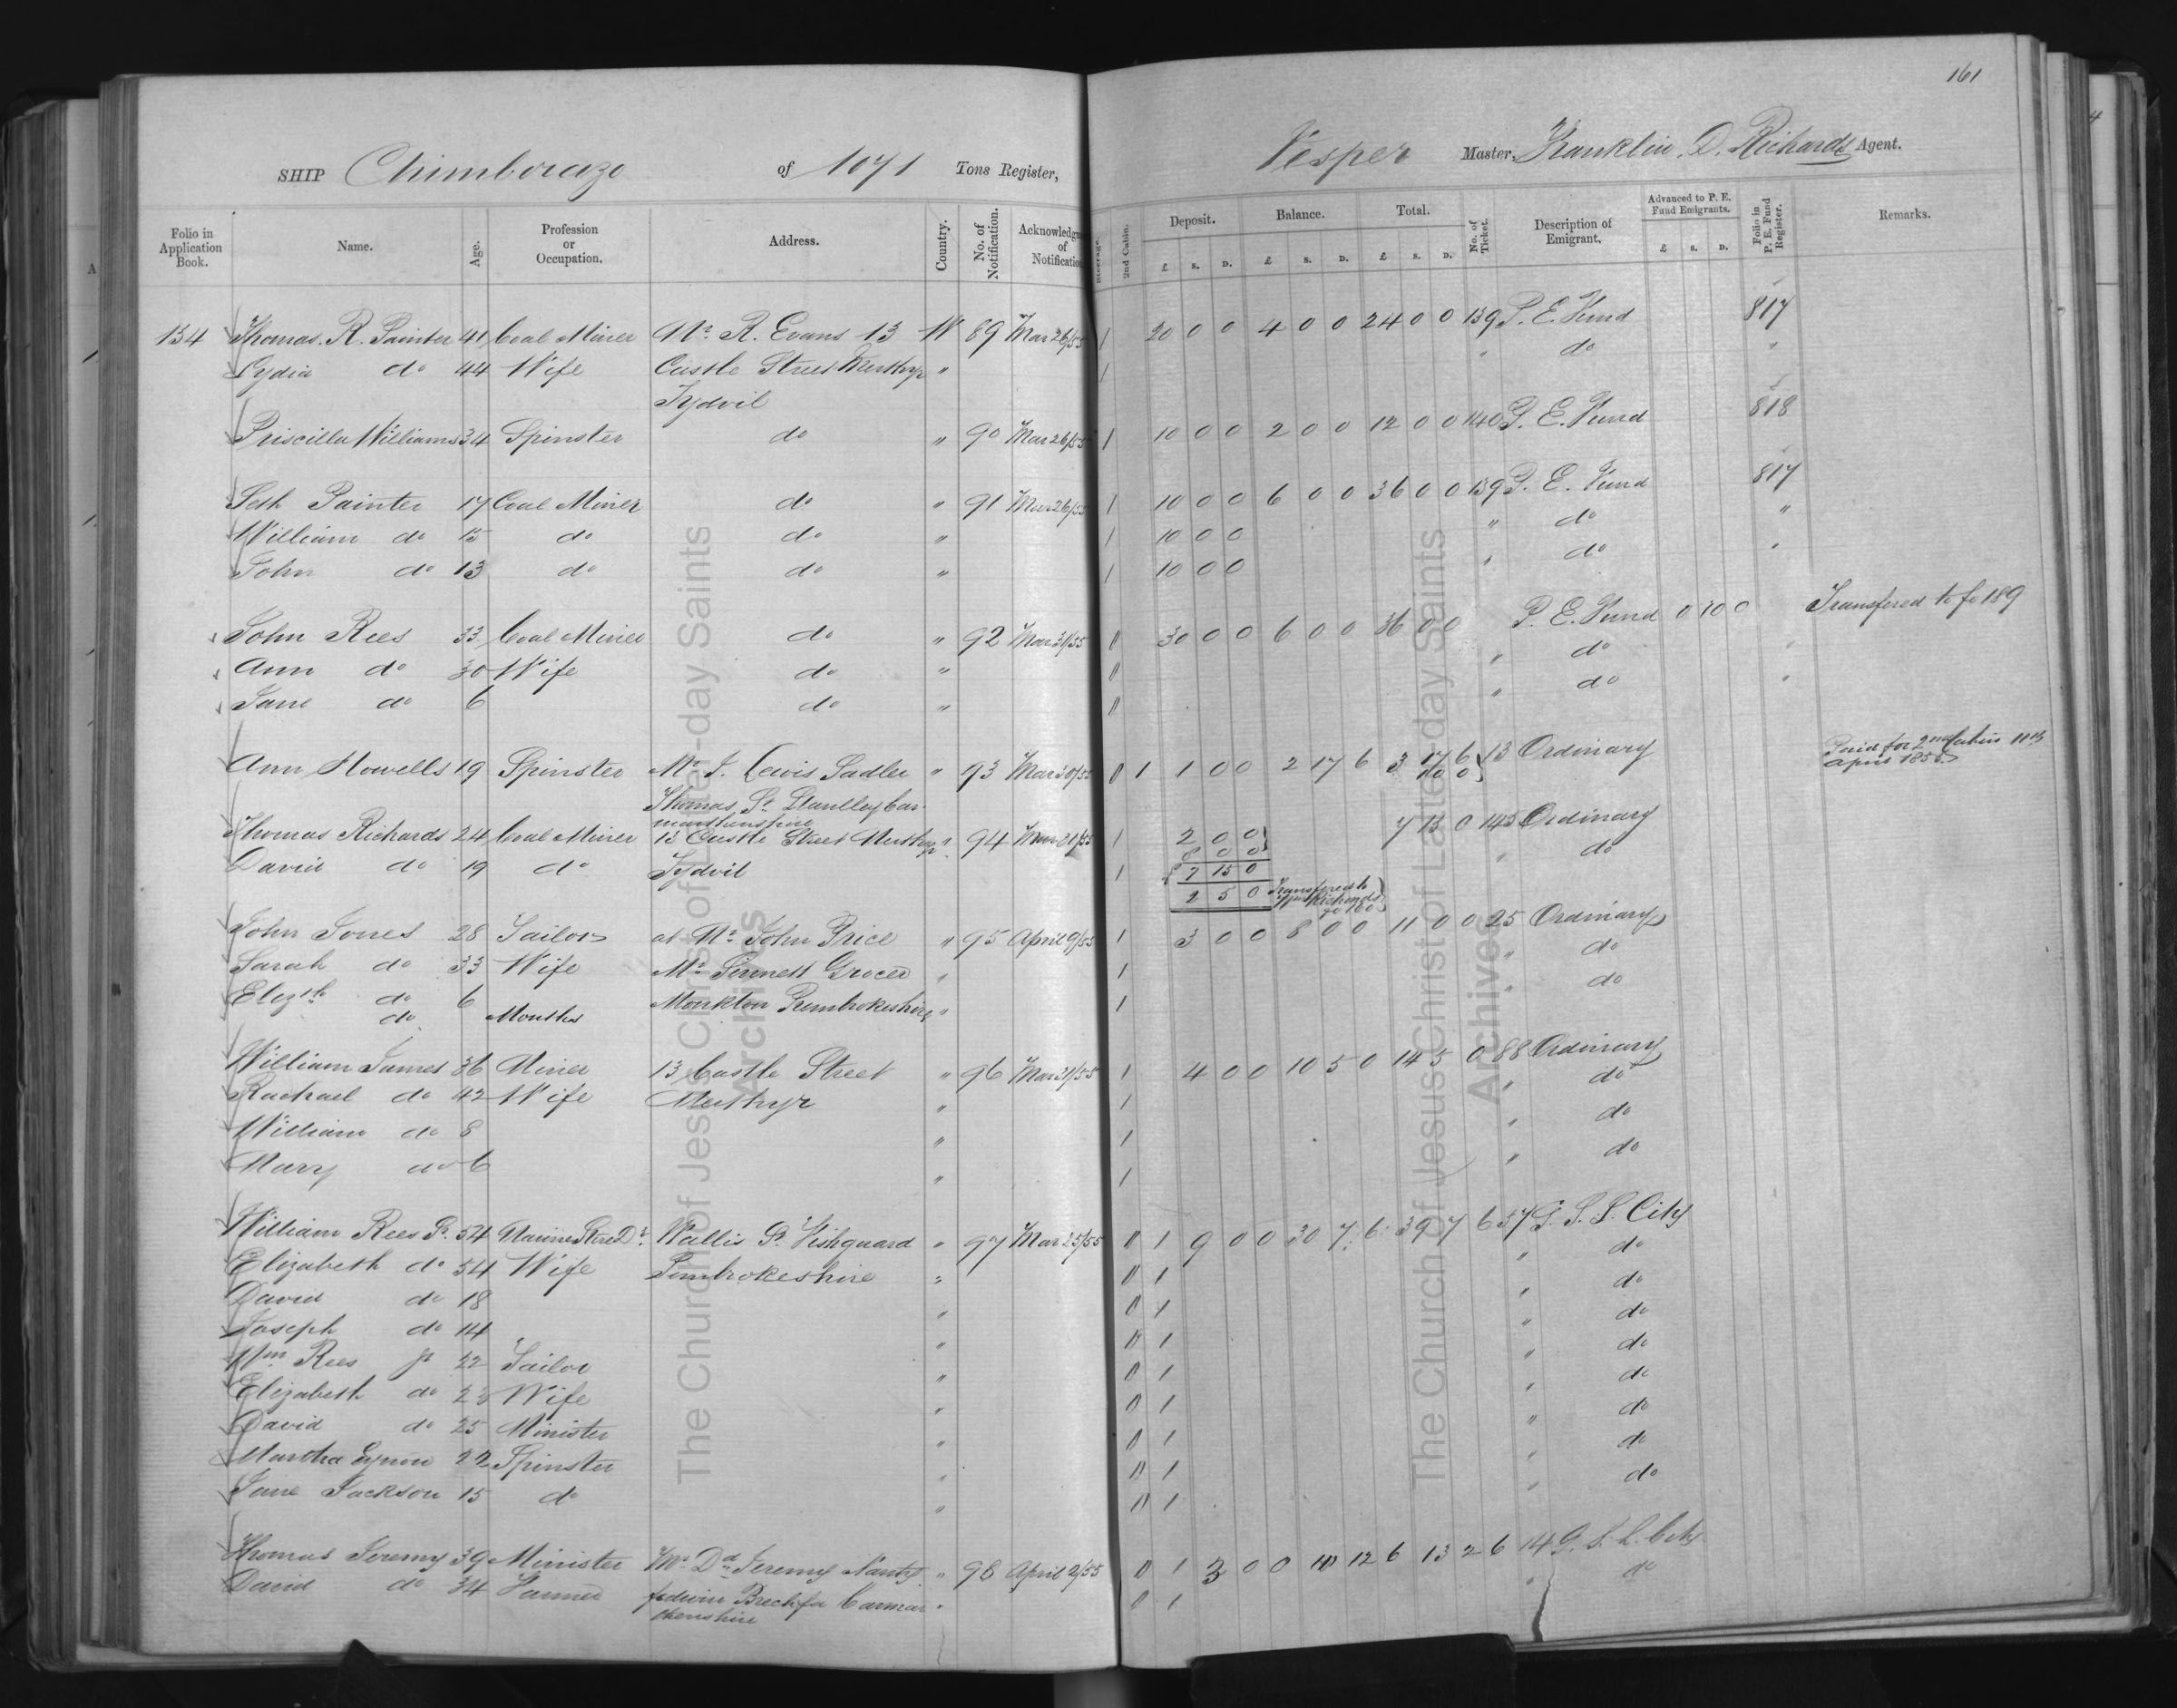 161
SHIP Chimborazo of 1071 Tons Register, Vesper Master, Franklin. D. Richards Agent.
Folio in Application Book. Name. Age. Profession or Occupation. Address. Country. No. of Notification. Acknowledgm of Notification Steerage. 2nd Cabin. Deposit. £ s. D. Balance. £ s. D. Total. £ s. D. No. of Ticket. Description of Emigrant. Advanced to P. E. Fund Emigrants. £ s. D. Folio in P. E. Fund Register. Remarks.
134 Thomas. R. Painter 41 Coal Miner Mr R. Evans 13 W 89 Mar 26/55 1 20 0 0 4 0 0 24 0 0 139 P. E. Fund 817
Lydia do 44 Wife Castle Street Merthyr " 1 " do "
Tydvil
Priscilla Williams 34 Spinster do " 90 Mar 26/55 1 10 0 0 2 0 0 12 0 0 140 P. E. Fund 818
Seth Painter 17 Coal Miner do " 91 Mar 26/55 1 10 0 0 6 0 0 36 0 0 139 P. E. Fund 817
William do 15 do do " 1 10 0 0 " do "
John do 13 do do " 1 10 0 0 " do "
John Rees 33 Coal Miner do " 92 Mar 31/55 30 0 0 6 0 0 36 0 0 P. E. Fund 0 10 0 Transfered to fo 189
Ann do 30 Wife do " " do "
Jane do 6 do " " do "
Ann Howells 19 Spinster Mr J. Lewis Sadler " 93 Mar 30/55 0 1 1 0 0 2 17 6 3 17 6 13 Ordinary Paid for 2nd Cabin 11th
April 1855
Thomas St Llanelly Car-
marthenshire
Thomas Richards 24 Coal Miner 13 Castle Street Merthyr " 94 Mar 31/55 1 2 0 0 7 15 0 143 Ordinary
8 0 0
David do 19 do Tydvil 1 7 15 0 " do
2 5 0 Transfered to
John Jones 28 Tailor at Mr John Price " 95 April 9/55 1 3 0 0 8 0 0 11 0 0 25 Ordinary
Sarah do 33 Wife Mr Grocer " 1 " do
Elizth do 6 Monkton Pembrokeshire " 1 " do
do Months
William James 36 Miner 13 Castle Street " 96 Mar 31/55 1 4 0 0 10 5 0 14 5 0 88 Ordinary
Rachael do 42 Wife Merthyr " 1 " do
William do 8 " 1 " do
Mary do 6 " 1 " do
William Rees Sr. 54 Marine Store Dr. Wallis St Fishguard " 97 Mar 25/55 0 1 9 0 0 30 7 6 39 7 6 57 G. S. L. City
Elizabeth do 54 Wife Pembrokeshire " 0 1 " do
David do 18 " 0 1 " do
Joseph do 14 " 0 1 " do
Wm Rees Jr 22 Tailor " 0 1 " do
Elizabeth do Wife " 0 1 " do
David do 25 Minister " 0 1 " do
Martha Eynon 22 Spinster " 0 1 " do
Jane Jackson 15 do " 0 1 " do
Thomas Jeremy 39 Minister Mr Dd Jeremy " 98 April 2/55 0 1 3 0 0 10 12 6 13 2 6 14 G. S. L. City
David do 34 Farmer Brechfa Carmar " 0 1 " do
thenshire
The Church of Jesus Christ of Latter-day Saints
Archives
The Church of Jesus Christ of Latter-day Saints
Archives